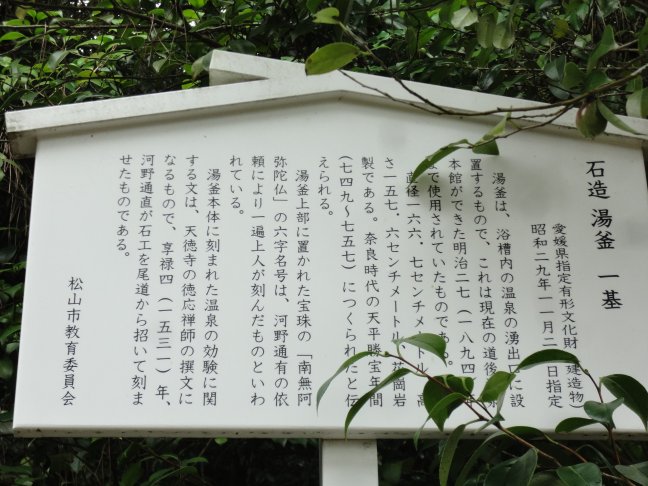 石造 湯釜 一基
愛媛県指定有形文化財(建造物)
昭和二九年一一月二 日指定
湯釜は、浴槽内の温泉の湧出口に設
置するもので、これは現在の道後
本館ができた明治二七(一八九四
で使用されていたものである。
直径一六六．七センチメートル、高
さ一五七．六センチメートル、花崗岩
製である。奈良時代の天平勝宝年間
(七四九～七五七)につくられたと伝
えられる。
湯釜上部に置かれた宝珠の「南無阿
弥陀仏」の六字名号は、河野通有の依
頼により一遍上人が刻んだものといわ
れている。
湯釜本体に刻まれた温泉の効験に関
する文は、天徳寺の徳応禅師の撰文に
なるもので、享禄四(一五三一)年、
河野通直が石工を尾道から招いて刻ま
せたものである。
松山市教育委員会